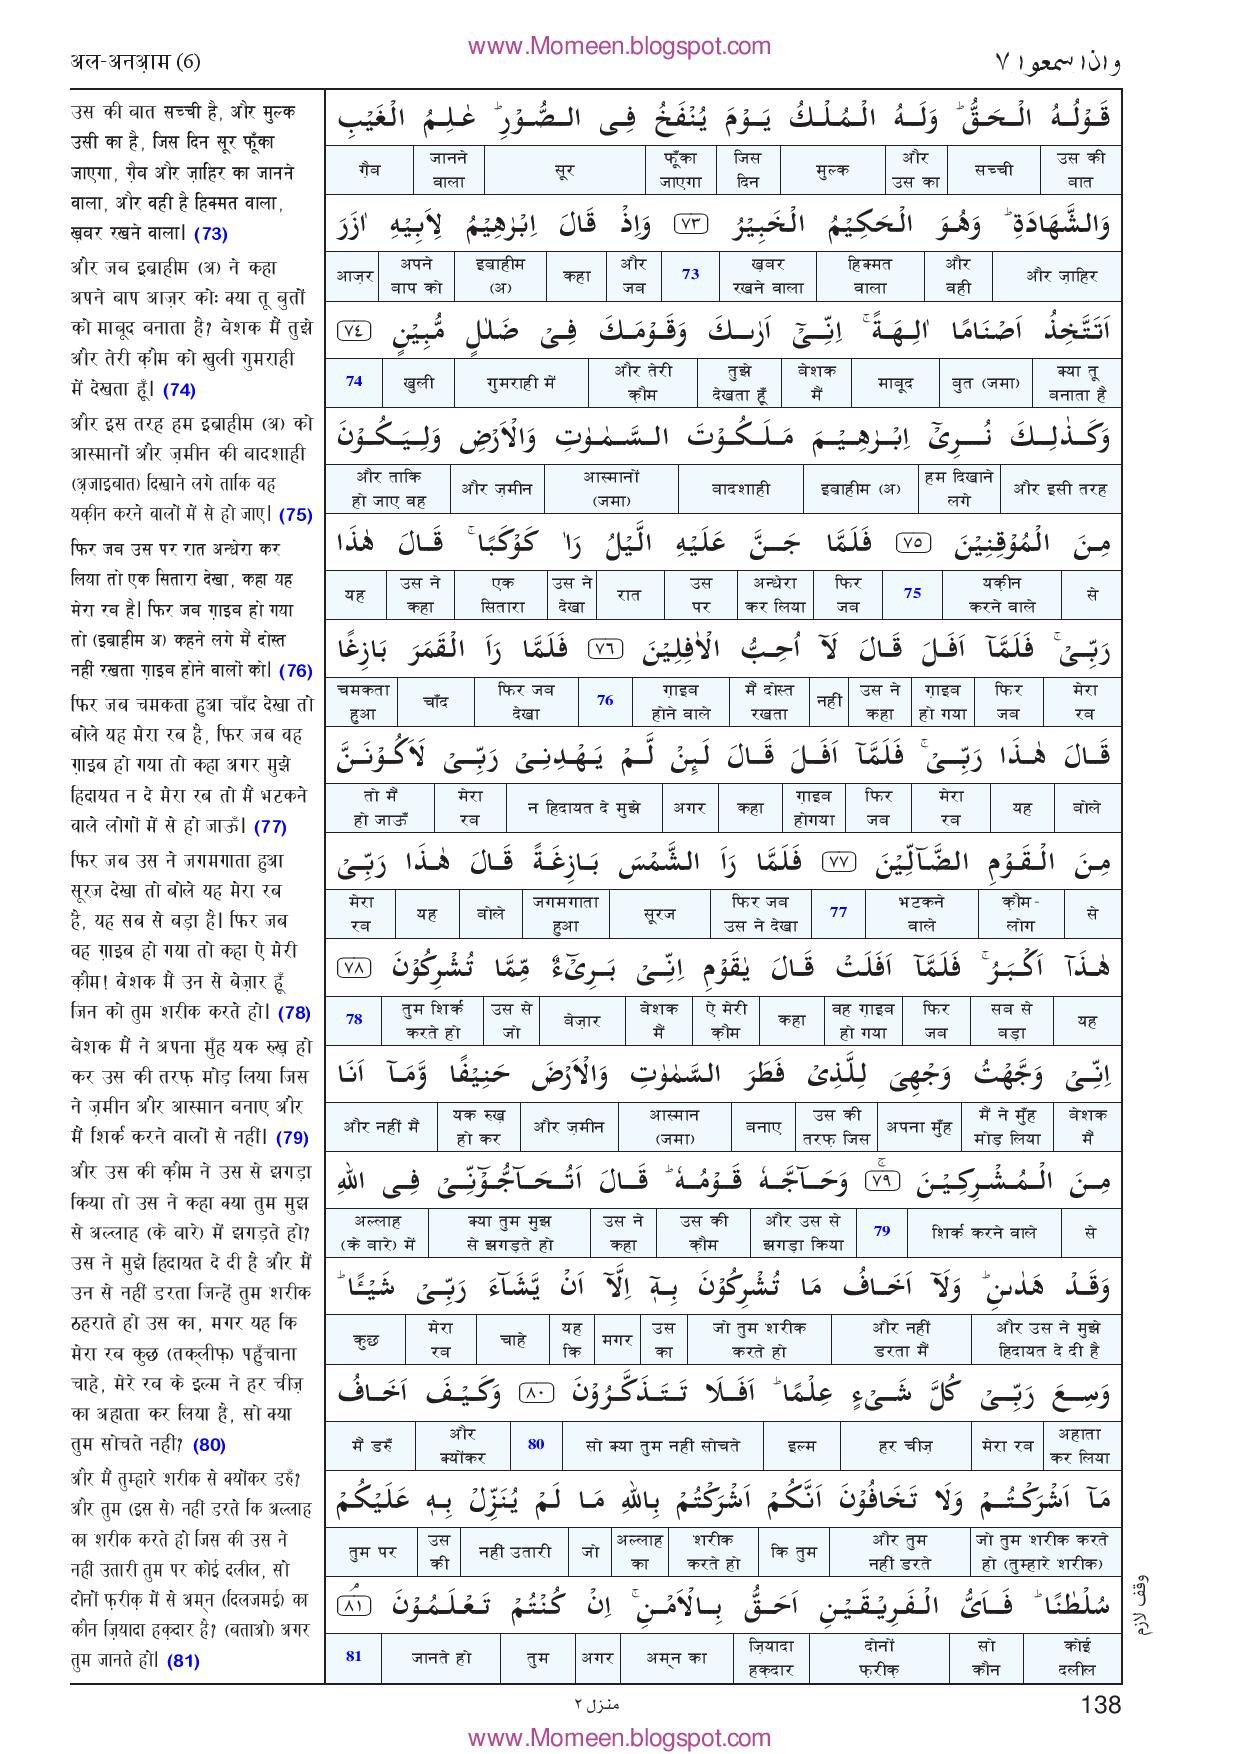 www.Momeen.blogspot.com
अल-अनआ़म (6)
وإذا سمعوا ٧
उस की बात सच्ची है, और मुल्क
उसी का है, जिस दिन सूर फूँका
जाएगा, ग़ैब और ज़ाहिर का जानने
वाला, और वही है हिक्मत वाला,
ख़बर रखने वाला। (73)
और जब इब्राहीम (अ) ने कहा
अपने बाप आज़र कोः क्या तू बुतों
को माबूद बनाता है? बेशक मैं तुझे
और तेरी क़ौम को खुली गुमराही
में देखता हूँ। (74)
और इस तरह हम इब्राहीम (अ) को
आस्मानों और ज़मीन की बादशाही
(अ़जाइबात) दिखाने लगे ताकि वह
यक़ीन करने वालों में से हो जाए। (75)
फिर जब उस पर रात अन्धेरा कर
लिया तो एक सितारा देखा, कहा यह
मेरा रब है। फिर जब ग़ाइब हो गया
तो (इब्राहीम अ) कहने लगे मैं दोस्त
नहीं रखता ग़ाइब होने वालों को। (76)
फिर जब चमकता हुआ चाँद देखा तो
बोले यह मेरा रब है, फिर जब वह
ग़ाइब हो गया तो कहा अगर मुझे
हिदायत न दे मेरा रब तो मैं भटकने
वाले लोगों में से हो जाऊँ। (77)
फिर जब उस ने जगमगाता हुआ
सूरज देखा तो बोले यह मेरा रब
है, यह सब से बड़ा है। फिर जब
वह ग़ाइब हो गया तो कहा ऐ मेरी
क़ौम! बेशक मैं उन से बेज़ार हूँ
जिन को तुम शरीक करते हो। (78)
बेशक मैं ने अपना मुँह यक रुख़ हो
कर उस की तरफ़ मोड़ लिया जिस
ने ज़मीन और आस्मान बनाए और
मैं शिर्क करने वालों से नहीं। (79)
और उस की क़ौम ने उस से झगड़ा
किया तो उस ने कहा क्या तुम मुझ
से अल्लाह (के बारे) में झगड़ते हो?
उस ने मुझे हिदायत दे दी है और मैं
उन से नहीं डरता जिन्हें तुम शरीक
ठहराते हो उस का, मगर यह कि
मेरा रब कुछ (तक्लीफ़) पहुँचाना
चाहे, मेरे रब के इल्म ने हर चीज़
का अहाता कर लिया है, सो क्या
तुम सोचते नहीं? (80)
और मैं तुम्हारे शरीक से क्योंकर डरुँ?
और तुम (इस से) नहीं डरते कि अल्लाह
का शरीक करते हो जिस की उस ने
नहीं उतारी तुम पर कोई दलील, सो
दोनों फ़रीक़ में से अम्न (दिलजमई) का
कौन ज़ियादा हक़दार है? (बताओ) अगर
तुम जानते हो। (81)
قَوْلُهُ الْحَقُّ ۚ وَلَهُ الْمُلْكُ يَوْمَ يُنْفَخُ فِى الصُّوْرِ ۚ عٰلِمُ الْغَيْبِ
उस की बात सच्ची और उस का मुल्क जिस दिन फूँका जाएगा सूर जानने वाला ग़ैब
وَالشَّهَادَةِ ۚ وَهُوَ الْحَكِيْمُ الْخَبِيْرُ ٧٣ وَاِذْ قَالَ اِبْرٰهِيْمُ لِاَبِيْهِ اٰزَرَ
और ज़ाहिर और वही हिक्मत वाला ख़बर रखने वाला 73 और जब कहा इब्राहीम (अ) अपने बाप को आज़र
اَتَتَّخِذُ اَصْنَامًا اٰلِهَةً ۚ اِنِّىْٓ اَرٰىكَ وَقَوْمَكَ فِىْ ضَلٰلٍ مُّبِيْنٍ ٧٤
क्या तू बनाता है बुत (जमा) माबूद बेशक मैं तुझे देखता हूँ और तेरी क़ौम गुमराही में खुली 74
وَكَذٰلِكَ نُرِىْٓ اِبْرٰهِيْمَ مَلَكُوْتَ السَّمٰوٰتِ وَالْاَرْضِ وَلِيَكُوْنَ
और इसी तरह हम दिखाने लगे इब्राहीम (अ) बादशाही आस्मानों (जमा) और ज़मीन और ताकि हो जाए वह
مِنَ الْمُوْقِنِيْنَ ٧٥ فَلَمَّا جَنَّ عَلَيْهِ الَّيْلُ رَاٰ كَوْكَبًا ۚ قَالَ هٰذَا
से यक़ीन करने वाले 75 फिर जब अन्धेरा कर लिया उस पर रात उस ने देखा एक सितारा उस ने कहा यह
رَبِّىْ ۚ فَلَمَّآ اَفَلَ قَالَ لَآ اُحِبُّ الْاٰفِلِيْنَ ٧٦ فَلَمَّا رَاَ الْقَمَرَ بَازِغًا
मेरा रब फिर जब ग़ाइब हो गया उस ने कहा नहीं मैं दोस्त रखता ग़ाइब होने वाले 76 फिर जब देखा चाँद चमकता हुआ
قَالَ هٰذَا رَبِّىْ ۚ فَلَمَّآ اَفَلَ قَالَ لَئِنْ لَّمْ يَهْدِنِىْ رَبِّىْ لَاَكُوْنَنَّ
बोले यह मेरा रब फिर जब ग़ाइब होगया कहा अगर न हिदायत दे मुझे मेरा रब तो मैं हो जाऊँ
مِنَ الْقَوْمِ الضَّآلِّيْنَ ٧٧ فَلَمَّا رَاَ الشَّمْسَ بَازِغَةً قَالَ هٰذَا رَبِّىْ
से क़ौम-लोग भटकने वाले 77 फिर जब उस ने देखा सूरज जगमगाता हुआ बोले यह मेरा रब
هٰذَآ اَكْبَرُ ۚ فَلَمَّآ اَفَلَتْ قَالَ يٰقَوْمِ اِنِّىْ بَرِىْٓءٌ مِّمَّا تُشْرِكُوْنَ ٧٨
यह सब से बड़ा फिर जब वह ग़ाइब हो गया कहा ऐ मेरी क़ौम बेशक मैं बेज़ार उस से जो तुम शिर्क करते हो 78
اِنِّىْ وَجَّهْتُ وَجْهِىَ لِلَّذِىْ فَطَرَ السَّمٰوٰتِ وَالْاَرْضَ حَنِيْفًا وَّمَآ اَنَا
बेशक मैं मैं ने मुँह मोड़ लिया अपना मुँह उस की तरफ़ जिस बनाए आस्मान (जमा) और ज़मीन यक रुख़ हो कर और नहीं मैं
مِنَ الْمُشْرِكِيْنَ ٧٩ وَحَآجَّهٗ قَوْمُهٗ ۚ قَالَ اَتُحَآجُّوْٓنِّىْ فِى اللّٰهِ
से शिर्क करने वाले 79 और उस से झगड़ा किया उस की क़ौम उस ने कहा क्या तुम मुझ से झगड़ते हो अल्लाह (के बारे) में
وَقَدْ هَدٰىنِ ۚ وَلَآ اَخَافُ مَا تُشْرِكُوْنَ بِهٖٓ اِلَّآ اَنْ يَّشَآءَ رَبِّىْ شَيْـًٔا ۚ
और उस ने मुझे हिदायत दे दी है और नहीं डरता मैं जो तुम शरीक करते हो उस का मगर यह कि चाहे मेरा रब कुछ
وَسِعَ رَبِّىْ كُلَّ شَىْءٍ عِلْمًا ۚ اَفَلَا تَتَذَكَّرُوْنَ ٨٠ وَكَيْفَ اَخَافُ
अहाता कर लिया मेरा रब हर चीज़ इल्म सो क्या तुम नहीं सोचते 80 और क्योंकर मैं डरुँ
مَآ اَشْرَكْتُمْ وَلَا تَخَافُوْنَ اَنَّكُمْ اَشْرَكْتُمْ بِاللّٰهِ مَا لَمْ يُنَزِّلْ بِهٖ عَلَيْكُمْ
जो तुम शरीक करते हो (तुम्हारे शरीक) और तुम नहीं डरते कि तुम शरीक करते हो अल्लाह का जो नहीं उतारी उस की तुम पर
سُلْطٰنًا ۚ فَاَىُّ الْفَرِيْقَيْنِ اَحَقُّ بِالْاَمْنِ ۚ اِنْ كُنْتُمْ تَعْلَمُوْنَ ٨١
कोई दलील सो कौन दोनों फ़रीक़ ज़ियादा हक़दार अम्न का अगर तुम जानते हो 81
وقف لازم
منزل ٢
138
www.Momeen.blogspot.com